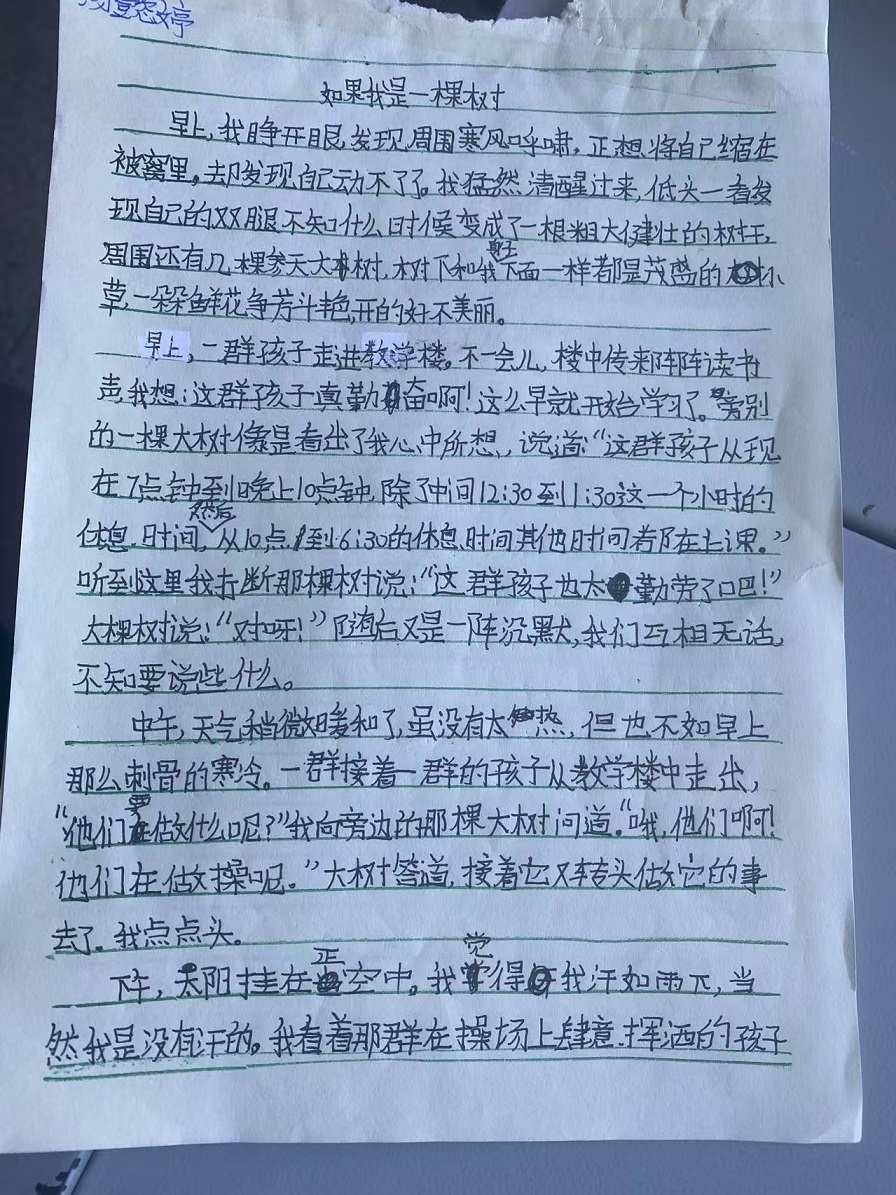 婷
如果我是一棵树
早上,我睁开眼,发现周围寒风呼啸,正想将自己缩在
被窝里,却发现自己动不了了。我猛然清醒过来,低头一看发
现自己的双腿不知什么时候变成了一根粗大健壮的树干,
周围还有几棵参天大树,树下和我身子下面一样都是茂盛的小
草,一朵朵鲜花争芳斗艳,开的好不美丽。
早上,一群孩子走进教学楼。不一会儿,楼中传来阵阵读书
声,我想:这群孩子真勤奋啊!这么早就开始学习了。旁别
的一棵大树像是看出了我心中所想,说道:“这群孩子从现
在7点钟到晚上10点钟,除了中间12:30到1:30这一个小时的
休息时间,然后从10点到6:30的休息时间其他时间都在上课。”
听到这里我打断那棵树说:“这群孩子也太勤劳了吧!”
大棵树说:“对呀!”随后又是一阵沉默,我们互相无话,
不知要说些什么。
中午,天气稍微暖和了,虽没有太热,但也不如早上
那么刺骨的寒冷。一群接着一群的孩子从教学楼中走出,
“他们要做什么呢?”我向旁边的那棵大树问道。“哦,他们啊!
他们在做操呢。”大树答道,接着它又转头做它的事
去了。我点点头。
下午,太阳挂在正空中。我觉得我汗如雨下,当
然我是没有汗的。我看着那群在操场上肆意挥洒的孩子